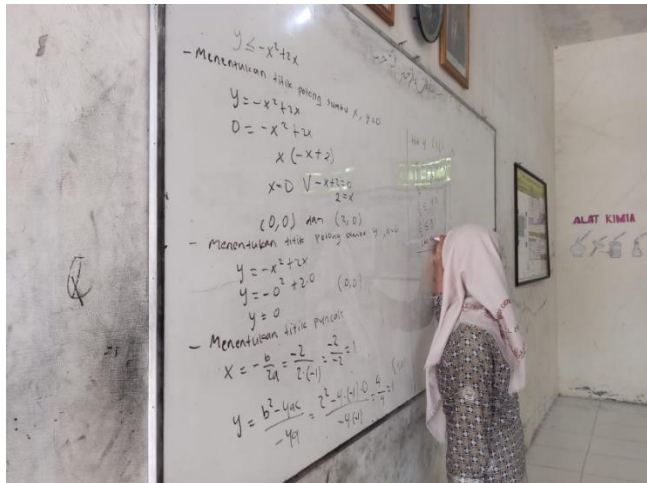 y ≤ -x²+2x
- Menentukan titik potong sumbu x, y=0
y = -x²+2x
0 = -x²+2x
x (-x+2)
x=0 V -x+2=0
2=x
(0,0) dan (2,0)
- Menentukan titik potong sumbu y, x=0
y = -x²+2x
y = -0²+2.0 (0,0)
y = 0
- Menentukan titik puncak
x = -b/2a = -2/2·(-1) = -2/-2 = 1
y = b²-4ac/-4a = 2²-4·(-1)·0/-4·(-1) = 4/4 = 1
ALAT KIMIA